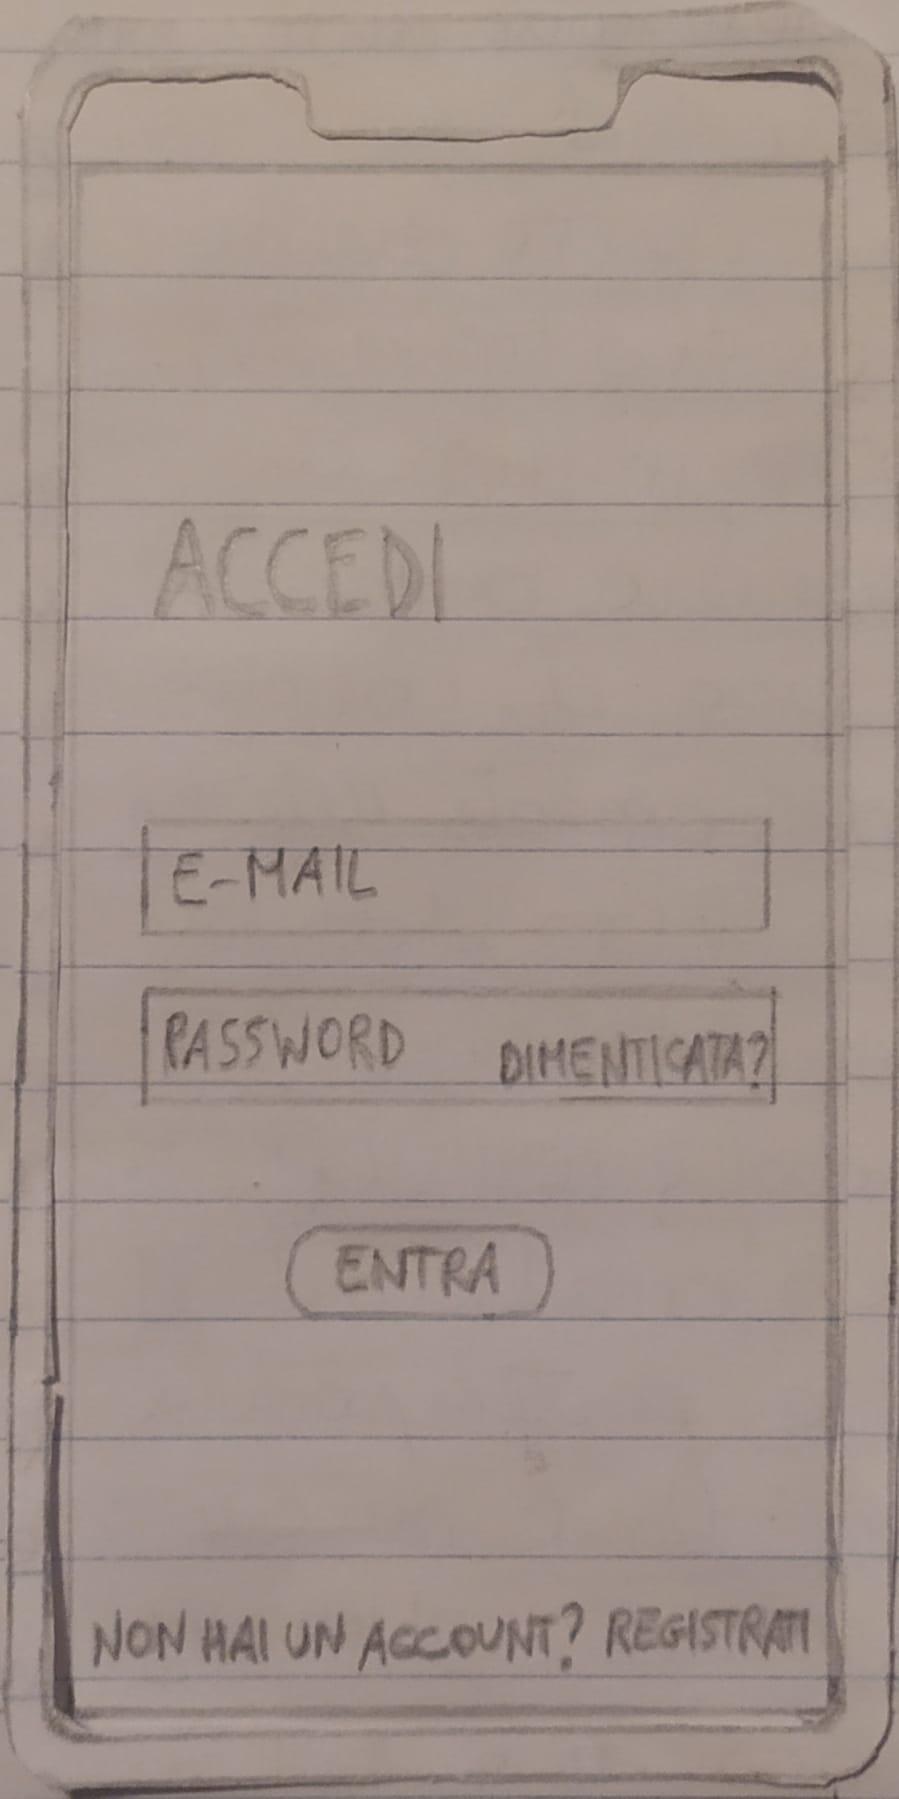 ACCEDI
E-MAIL
PASSWORD DIMENTICATA?
ENTRA
NON HAI UN ACCOUNT? REGISTRATI